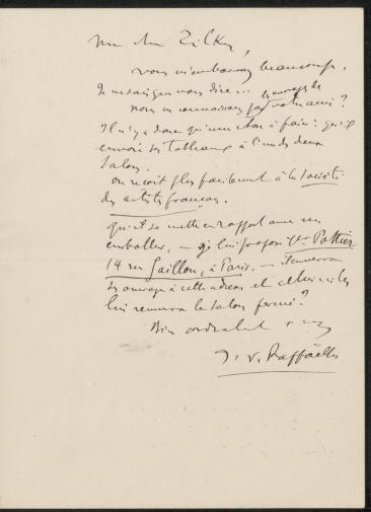 mon cher Zilken,
vous m'embarrassez beaucoup.
Je ne sais que vous dire
les ouvrages de
nous ne connaissons pas votre ami?
Il n'y a donc qu'une chose à faire: qu'il
envoie ses tableaux à l'un des deux
salons.
on reçoit plus facilement à la Société
des artistes français.
qu'il se mette en rapport avec un
emballeur, — je lui propose Pottier
14 rue Gaillon, à Paris. — il enverra
ses ouvrages à cette adresse et celui-ci les
lui renverra le salon fermé?
Bien cordialement à vous
J. F. Raffaëlli